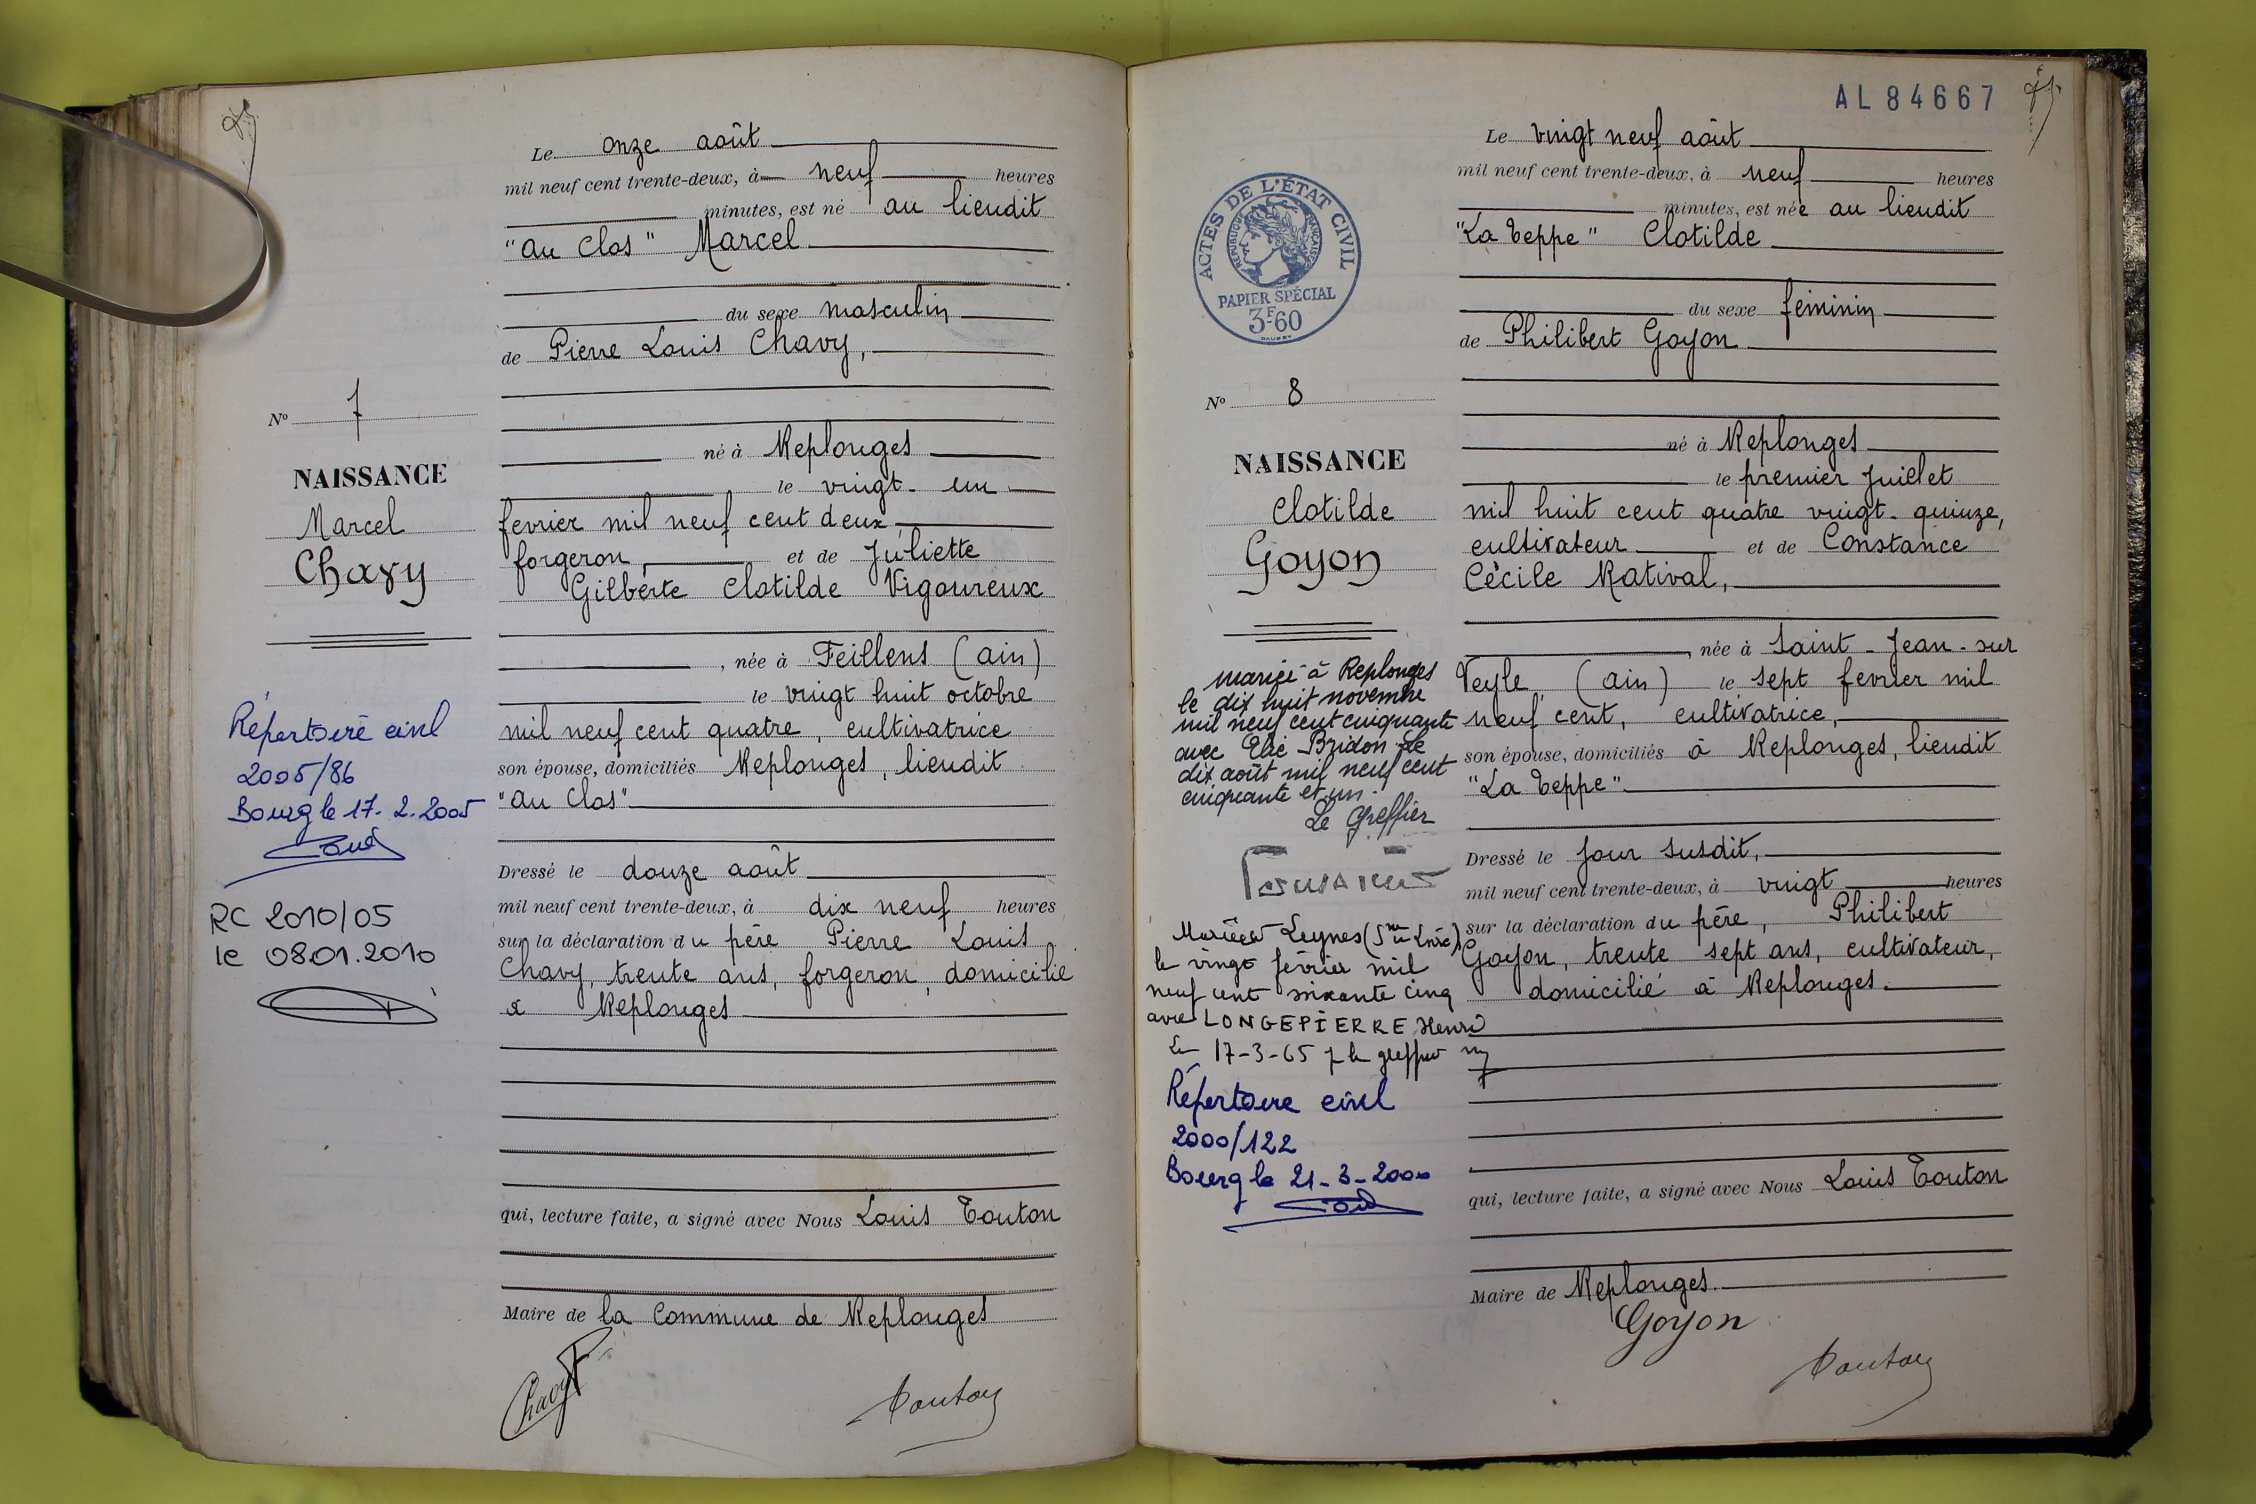 Le onze août
mil neuf cent trente-deux, à neuf heures
minutes, est né au lieudit
"au Clos" Marcel
du sexe masculin
de Pierre Louis Chavy,
N° 7
né à Replonges
NAISSANCE
le vingt-un
Marcel
fevrier mil neuf cent deux
Chavy
forgeron, et de Juliette
Gilberte Clotilde Vigoureux
, née à Feillens (ain)
le vingt huit octobre
mil neuf cent quatre, cultivatrice
son épouse, domiciliés Replonges, lieudit
"au Clos"
Répertoire civil
2005/86
Bourg le 17.2.2005
Dressé le douze août
mil neuf cent trente-deux, à dix neuf heures
sur la déclaration du père Pierre Louis
Chavy, trente ans, forgeron, domicilié
à Replonges
RC 2010/05
le 08.01.2010
qui, lecture faite, a signé avec Nous Louis Touton
Maire de la Commune de Replonges
Chavy
Touton
AL 84667
Le vingt neuf août
mil neuf cent trente-deux, à neuf heures
minutes, est née au lieudit
"La Teppe" Clotilde
du sexe féminin
de Philibert Goyon
ACTES DE L'ÉTAT CIVIL
RÉPUBLIQUE FRANÇAISE
PAPIER SPÉCIAL
3F60
N° 8
né à Replonges
NAISSANCE
le premier Juillet
Clotilde
mil huit cent quatre vingt-quinze,
Goyon
cultivateur et de Constance
Cécile Rativat,
, née à Saint-Jean-sur
Veyle, (ain) le sept fevrier mil
neuf cent, cultivatrice,
son épouse, domiciliés à Replonges, lieudit
"La Teppe"
mariée à Replonges
le dix huit novembre
mil neuf cent cinquante
avec Elie Bridon. Le
dix août mil neuf cent
cinquante et un.
Le Greffier
Dressé le jour susdit,
mil neuf cent trente-deux, à vingt heures
sur la déclaration du père, Philibert
Goyon, trente sept ans, cultivateur,
domicilié à Replonges.
Mariée à Leynes (Sne et Loire)
le vingt février mil
neuf cent soixante cinq
avec LONGEPIERRE Henri
Le 17-3-65 p le greffier
Répertoire civil
2000/122
Bourg le 21-3-2000
qui, lecture faite, a signé avec Nous Louis Touton
Maire de Replonges.
Goyon
Touton